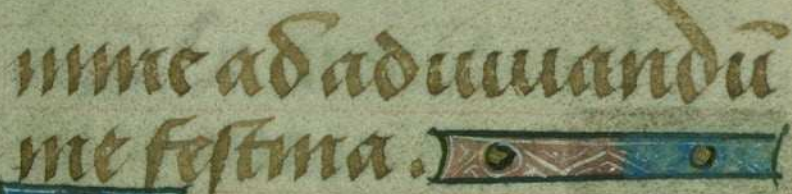 mine ad adiuuandū
me festina.